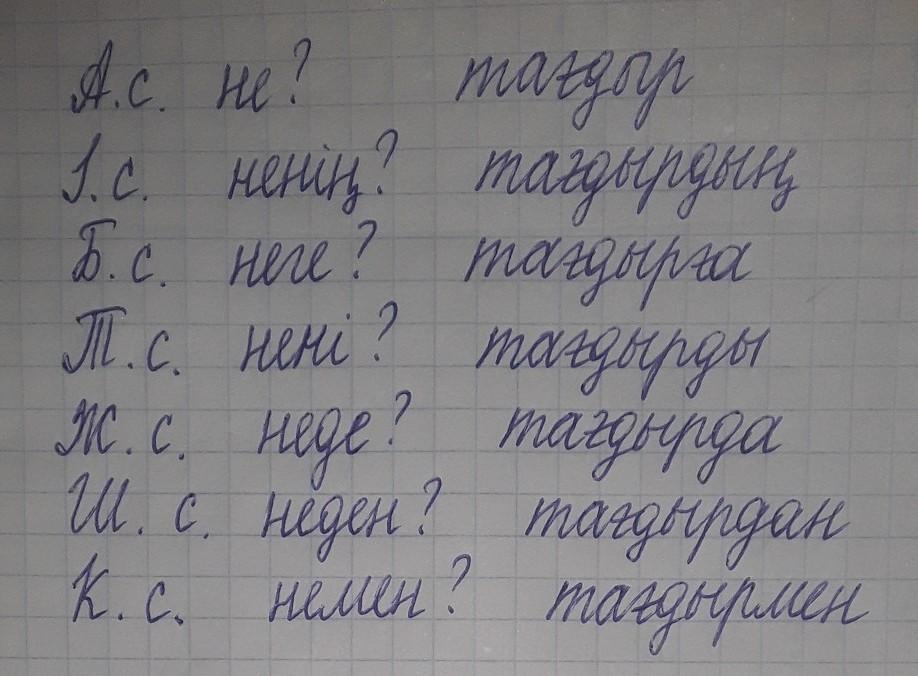 А.с. не? тағдыр
І.с. ненің? тағдырдың
Б.с. неге? тағдырға
Т.с. нені? тағдырды
Ж.с. неде? тағдырда
Ш.с. неден? тағдырдан
К.с. немен? тағдырмен